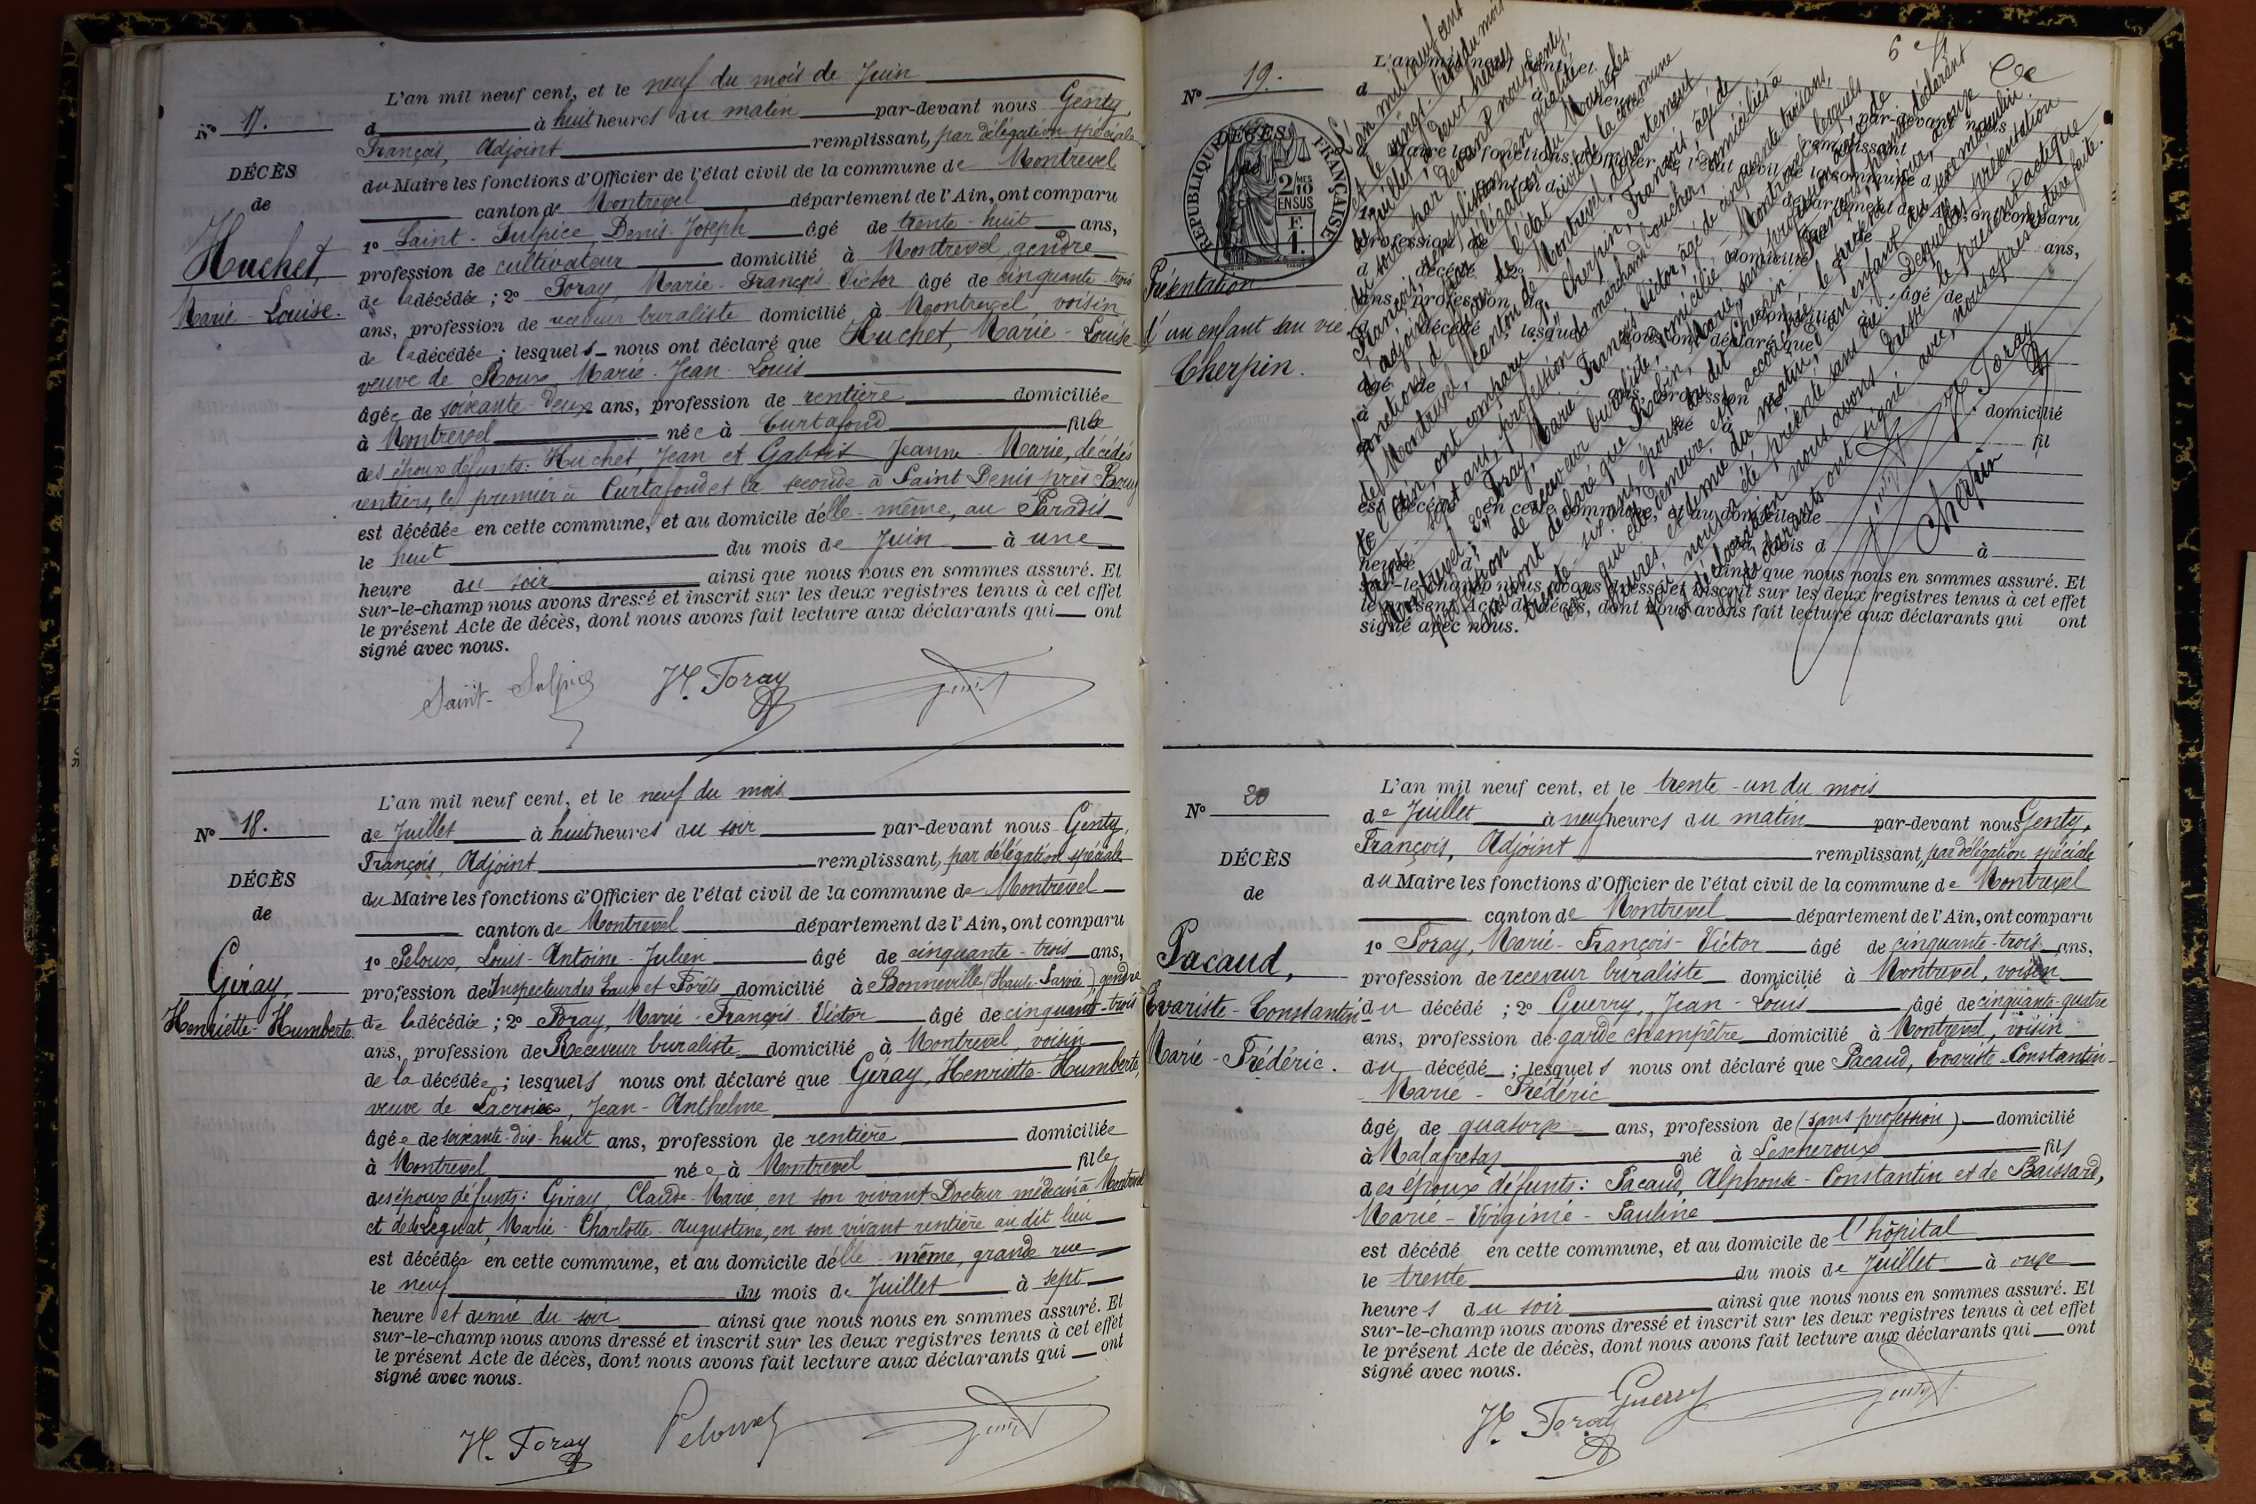 N° 17.
DÉCÈS
de
Huchet,
Marie-Louise.
L'an mil neuf cent, et le neuf du mois de Juin
d à huit heures du matin par-devant nous Genty
François, Adjoint remplissant, par délégation spéciale
du Maire les fonctions d'Officier de l'état civil de la commune de Montrevel
canton de Montrevel département de l'Ain, ont comparu
1° Saint-Sulpice, Denis-Joseph âgé de trente-huit ans,
profession de cultivateur domicilié à Montrevel, gendre
de la décédée; 2° Foray, Marie-François-Victor âgé de cinquante-trois
ans, profession de receveur buraliste domicilié à Montrevel, voisin
de la décédée; lesquels nous ont déclaré que Huchet, Marie-Louise
veuve de Roux, Marie-Jean-Louis
âgée de soixante-deux ans, profession de rentière domiciliée
à Montrevel née à Curtafond fille
des époux défunts: Huchet, Jean et Jeanne-Marie, décédés
rentiers, le premier à Curtafond et la seconde à Saint Denis près Bourg
est décédée en cette commune, et au domicile d'elle-même, au Paradis
le huit du mois de Juin à une
heure du soir ainsi que nous nous en sommes assuré. Et
sur-le-champ nous avons dressé et inscrit sur les deux registres tenus à cet effet
le présent Acte de décès, dont nous avons fait lecture aux déclarants qui ont
signé avec nous.
Saint-Sulpice H. Foray Genty
N° 18.
DÉCÈS
de
Giray,
Henriette-Humberte
L'an mil neuf cent, et le neuf du mois
de Juillet à huit heures du soir par-devant nous Genty,
François, Adjoint remplissant, par délégation spéciale
du Maire les fonctions d'Officier de l'état civil de la commune de Montrevel
canton de Montrevel département de l'Ain, ont comparu
1° Peloux, Louis-Antoine-Julien âgé de cinquante-trois ans,
profession de Inspecteur des Eaux et Forêts domicilié à Bonneville (Haute-Savoie) gendre
de la décédée; 2° Foray, Marie-François-Victor âgé de cinquante-trois
ans, profession de Receveur buraliste domicilié à Montrevel, voisin
de la décédée; lesquels nous ont déclaré que Giray, Henriette-Humberte,
veuve de Lacroix, Jean-Anthelme
âgée de soixante-dix-huit ans, profession de rentière domiciliée
à Montrevel née à Montrevel fille
des époux défunts: Giray, Claude-Marie, en son vivant Docteur médecin à Montrevel
et de Marie-Charlotte-Augustine, en son vivant rentière au dit lieu
est décédée en cette commune, et au domicile d'elle-même, grande rue
le neuf du mois de Juillet à sept
heure et demie du soir ainsi que nous nous en sommes assuré. Et
sur-le-champ nous avons dressé et inscrit sur les deux registres tenus à cet effet
le présent Acte de décès, dont nous avons fait lecture aux déclarants qui ont
signé avec nous.
H. Foray Peloux Genty
N° 19.
DÉCÈS
RÉPUBLIQUE FRANÇAISE
2 MES
10 EN SUS
F. 1
Présentation
d'un enfant san vie
Cherpin.
L'an mil neuf cent
et le vingt-trois du mois
de Juillet à deux heures
du soir, par devant nous, Genty,
François, remplissant en qualité
d'adjoint, par délégation du Maire, les
fonctions d'officier de l'état civil de la commune
de Montrevel, canton de Montrevel, département
de l'Ain, ont comparu: 1° Cherpin, François, âgé de
trente-sept ans, profession de marchand boucher, domicilié à
Montrevel; 2° Foray, Marie François Victor, âgé de cinquante trois ans,
profession de receveur buraliste, domicilié à Montrevel, lesquels
nous ont déclaré que Robin, Marie, sans profession, âgée de
trente-six ans, épouse du dit Cherpin François, premier déclarant
avec qui elle demeure est accouchée, le
heures et demie du matin, d'un enfant du sexe masculin
qui nous a été présenté sans vie. Desquelles présentation
et déclaration nous avons dressé le présent acte que
les déclarants ont signé avec nous, après lecture faite.
H. Foray
Cherpin
Genty
N° 20
DÉCÈS
de
Pacaud,
Evariste-Constantin
Marie-Frédéric.
L'an mil neuf cent, et le trente-un du mois
de Juillet à neuf heures du matin par-devant nous Genty,
François, Adjoint remplissant, par délégation spéciale
du Maire les fonctions d'Officier de l'état civil de la commune de Montrevel
canton de Montrevel département de l'Ain, ont comparu
1° Foray, Marie-François-Victor âgé de cinquante-trois ans,
profession de receveur buraliste domicilié à Montrevel, voisin
du décédé; 2° Guerry, Jean-Louis âgé de cinquante-quatre
ans, profession de garde champêtre domicilié à Montrevel, voisin
du décédé; lesquels nous ont déclaré que Pacaud, Evariste-Constantin-
Marie-Frédéric
âgé de quatorze ans, profession de (sans profession) domicilié
à Malafretaz né à Lescheroux fils
des époux défunts: Pacaud, Alphonse-Constantin et de
Marie-Virginie-Pauline
est décédé en cette commune, et au domicile de l'hôpital
le trente du mois de Juillet à onze
heures du soir ainsi que nous nous en sommes assuré. Et
sur-le-champ nous avons dressé et inscrit sur les deux registres tenus à cet effet
le présent Acte de décès, dont nous avons fait lecture aux déclarants qui ont
signé avec nous.
H. Foray Guerry Genty